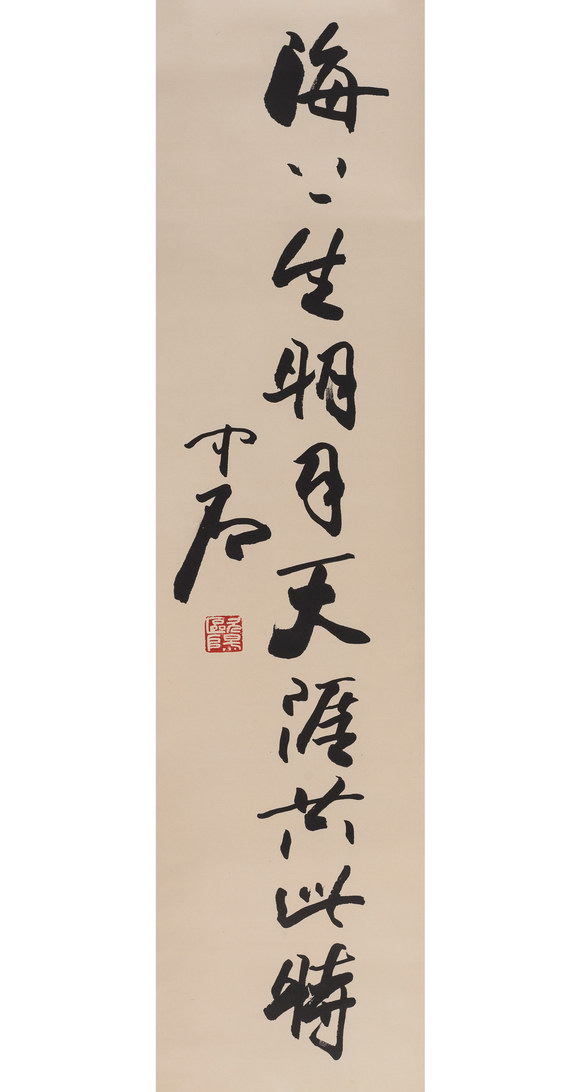 海上生明月天涯共此時
中石
歐陽